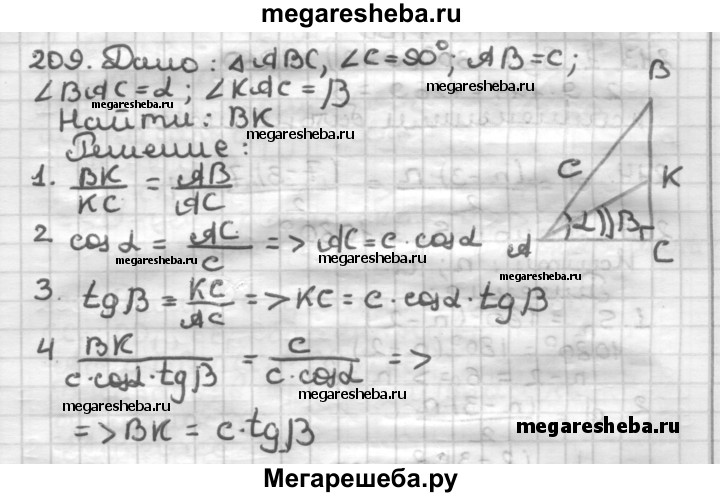 megaresheba.ru
209. Дано: △ABC, ∠C=90°; AB=c;
∠BAC=α; ∠KAC=β
megaresheba.ru
megaresheba.ru
Найти: BK
megaresheba.ru
Решение:
1. BK/KC = AB/AC
2. cosα = AC/c => AC=c·cosα
megaresheba.ru
megaresheba.ru
3. tgβ = KC/AC => KC=c·cosα·tgβ
4. BK/(c·cosα·tgβ) = c/(c·cosα) =>
megaresheba.ru
megaresheba.ru
=> BK = c·tgβ
B
K
C
A
α
β
C
megaresheba.ru
Мегарешеба.ру